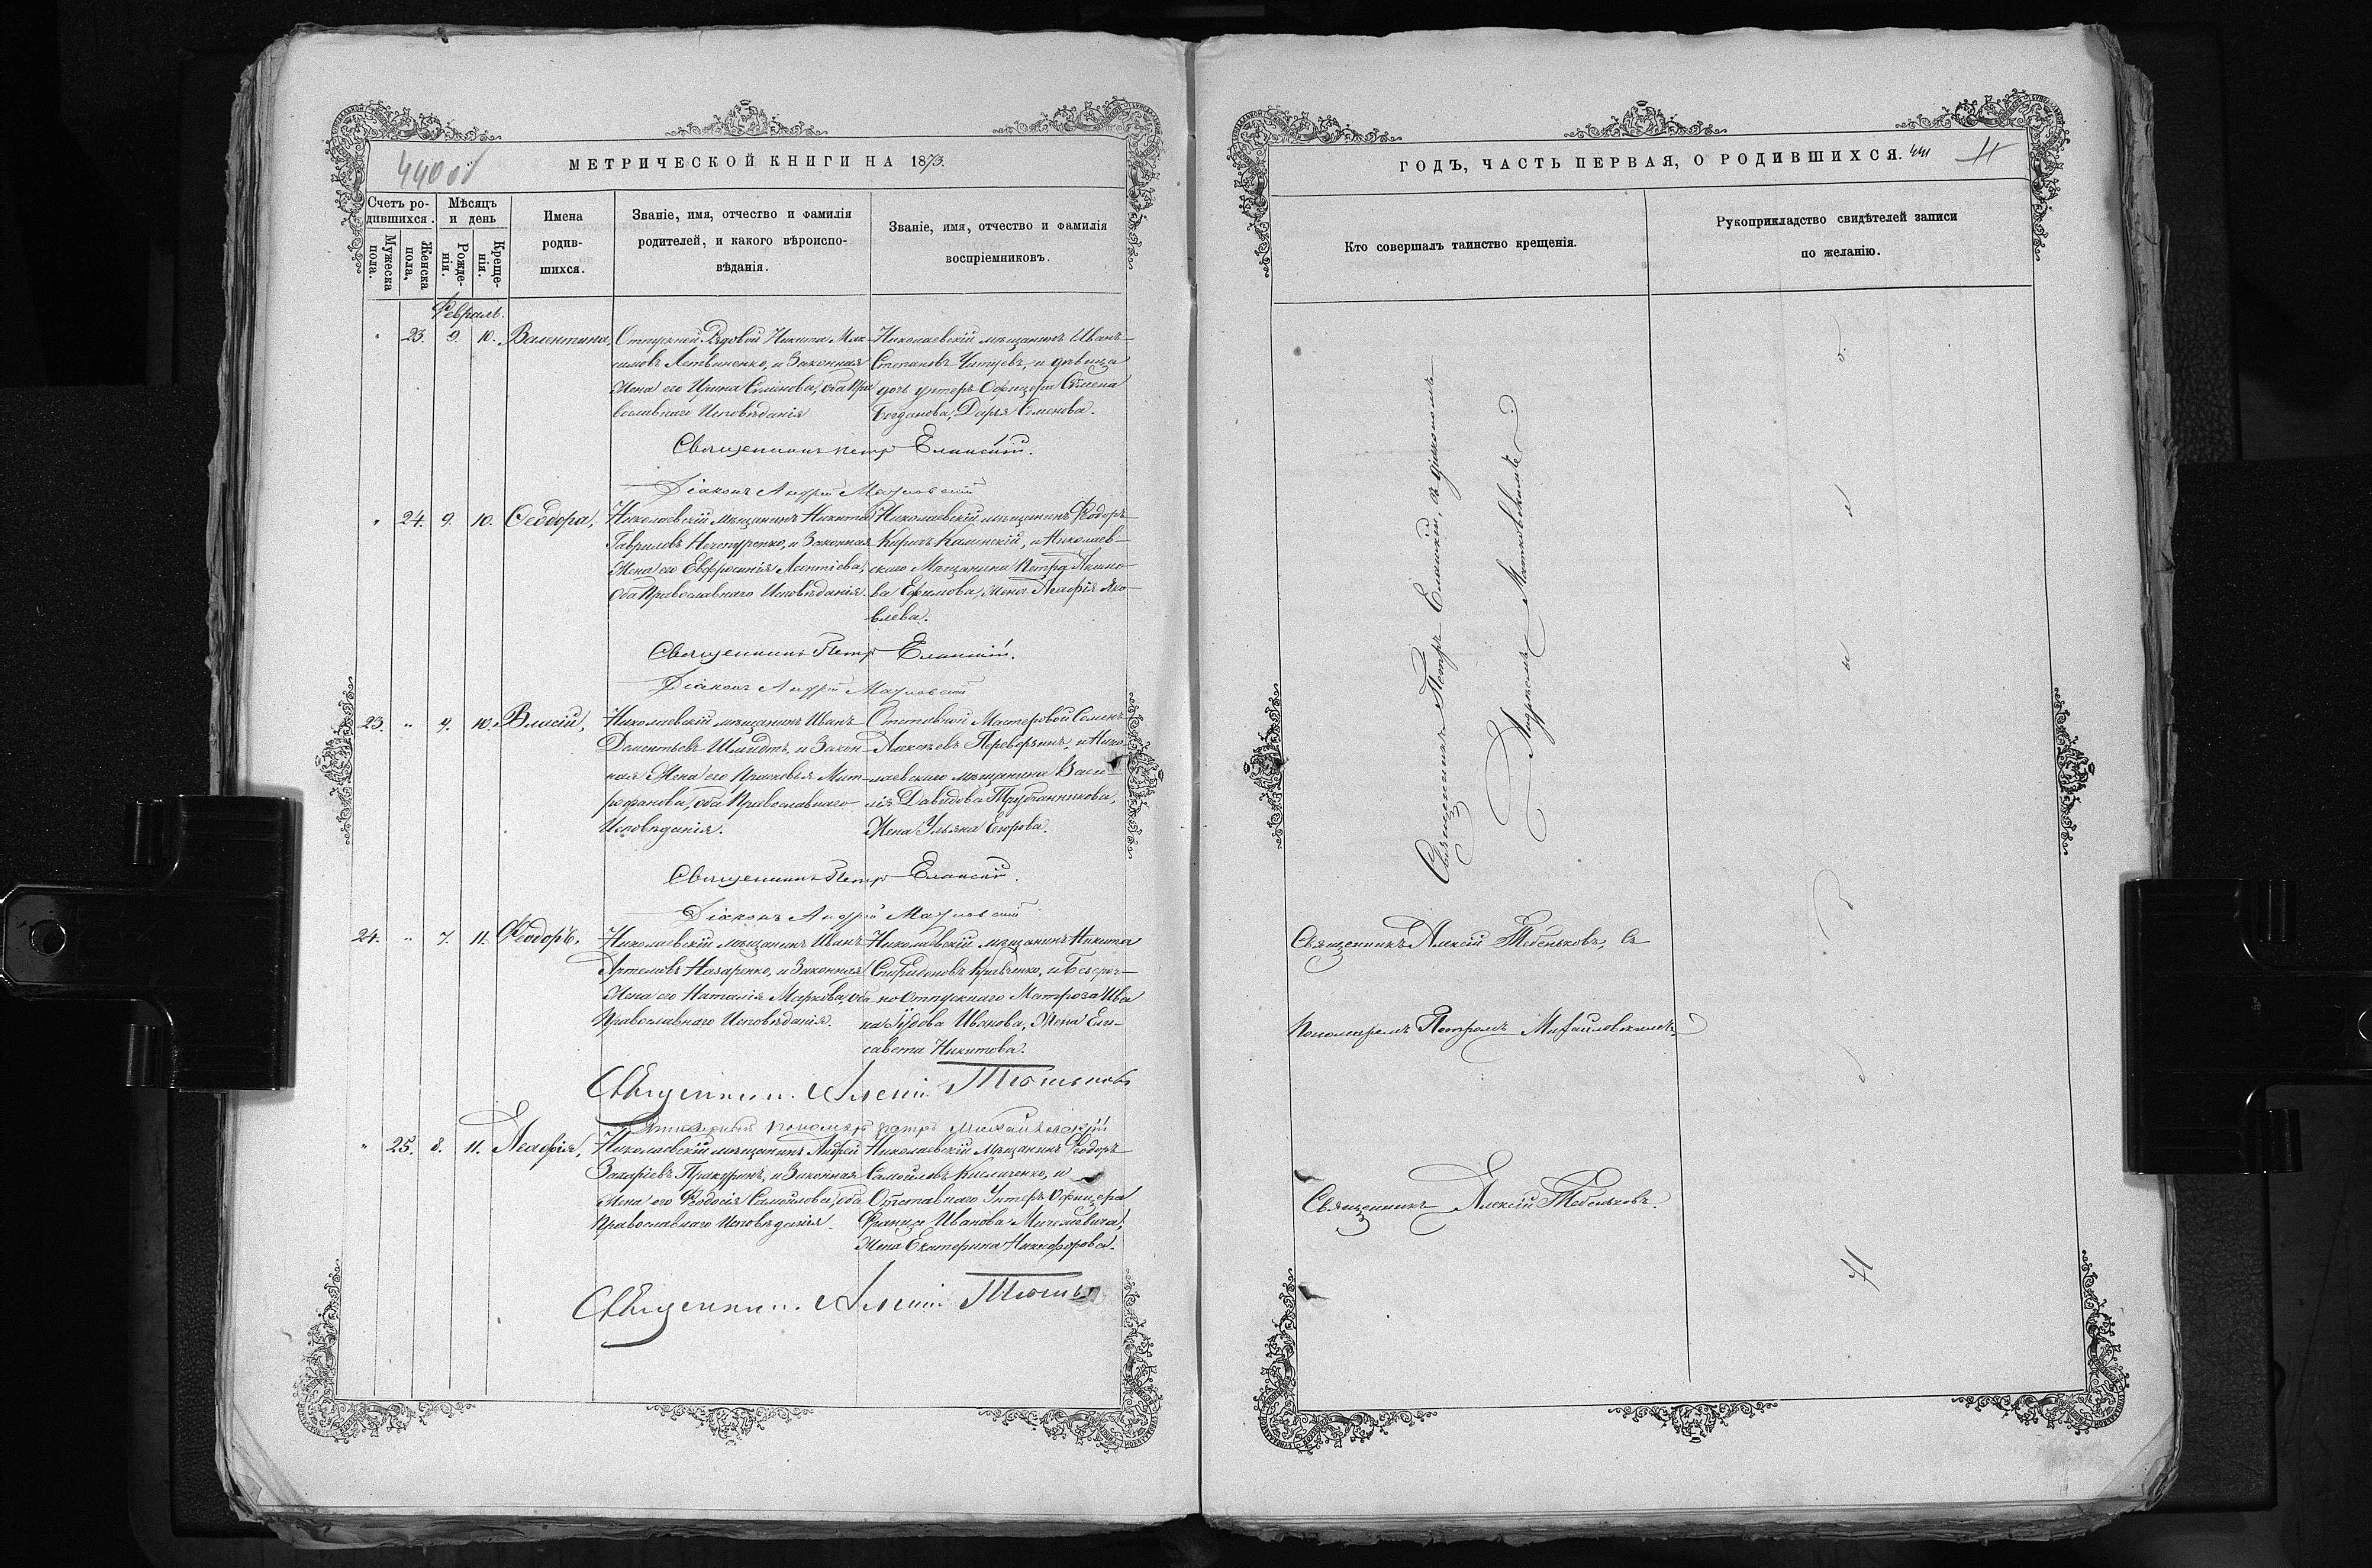 440 об
МЕТРИЧЕСКОЙ КНИГИ НА 1873.
Счетъ ро-
дившихся.
Мужеска
пола.
Женска
пола,
Мѣсяцъ
и день
Рожде-
нія.
Креще-
нія.
Имена
родив-
шихся.
Званіе, имя, отчество и фамилія
родителей, и какого вѣроиспо-
вѣданія.
Званіе, имя, отчество и фамилія
воспріемниковъ.
Февраль.
" 23. 9. 10. Валентина,
Отпускной Рядовой Никита Мак-
симовъ Литвиненко, и Законная
Жена его Ирина Семенова, оба Пра
вославнаго Исповѣданія
Николаевскій мѣщанинъ Иванъ
Степановъ и дѣвица
дочь унтеръ Офицера Семена
Богданова, Дарья Семенова.
Священникъ Петръ Еланскій.
Діаконъ Андрей
" 24. 9. 10. Ѳеодора,
Николаевскій мѣщанинъ Никита
Гавриловъ Нечепуренко, и Законная
Жена его Евфросинія Леонтіева,
Оба Православнаго Исповѣданія.
Николаевскій мѣщанинъ Ѳеодоръ
Каминскій, и Николаев-
скаго Мѣщанина Петра
ва Ефимова, жена Агафія Яко-
влева.
Священникъ Петръ Еланскій.
Діаконъ Андрей
23. " 9. 10. Власій,
Николаевскій мѣщанинъ Иванъ
Дементьевъ Шмидтъ, и Закон-
ная Жена его Прасковья Мит-
рофанова, оба Православнаго
Исповѣданія.
Отставной Мастеровой Семенъ
Алексѣевъ Переверзинъ, и Нико-
лаевскаго мѣщанина Васи-
лія Давидова Трубчанинова,
Жена Ульяна Егорова.
Священникъ Петръ Еланскій.
Діаконъ Андрей
24. " 7. 11. Ѳеодоръ.
Николаевскій мѣщанинъ Иванъ
Артемовъ Назаренко, и Законная
Жена его Наталія Маркова, оба
Православнаго Исповѣданія.
Николаевскій мѣщанинъ Никита
Спиридоновъ Кравченко, и Безсроч-
но Отпускнаго Матроза Ива
на Гудова Иванова, Жена Ели-
савета Никитова.
Священникъ Алексій
Пономарь Петръ Михайловскій
" 25. 8. 11. Агафія,
Николаевскій мѣщанинъ Андрей
Захаріевъ и Законная
Жена его Ѳеодосія Самойлова, оба
Православнаго Исповѣданія.
Николаевскій Мѣщанинъ Ѳеодоръ
Самойловъ Кисличенко, и
Отставнаго Унтеръ Офицера
Франца Иванова
Жена Екатерина Никифорова.
Священникъ Алексій
ГОДЪ, ЧАСТЬ ПЕРВАЯ, О РОДИВШИХСЯ. 441
Кто совершалъ таинство крещенія.
Рукоприкладство свидѣтелей записи
по желанію.
Священникъ Петръ Еланскій, съ діакономъ
Андреемъ
Священникъ Алексій Тебеньковъ, съ
Пономаремъ Петромъ Михайловскимъ
Священникъ Алексій Тебеньковъ.